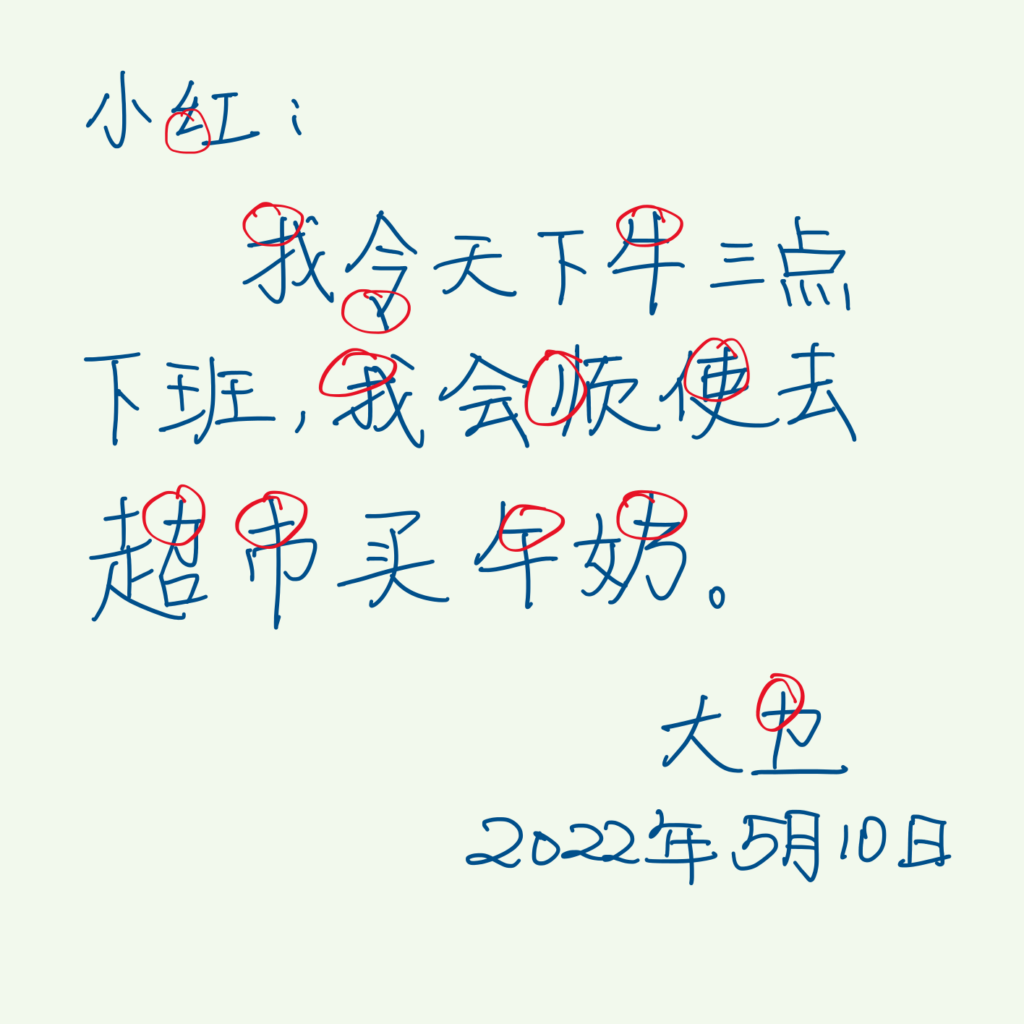 小红：
我今天下牛三点
下班，我会顺便去
超市买午奶。
大卫
2022年5月10日